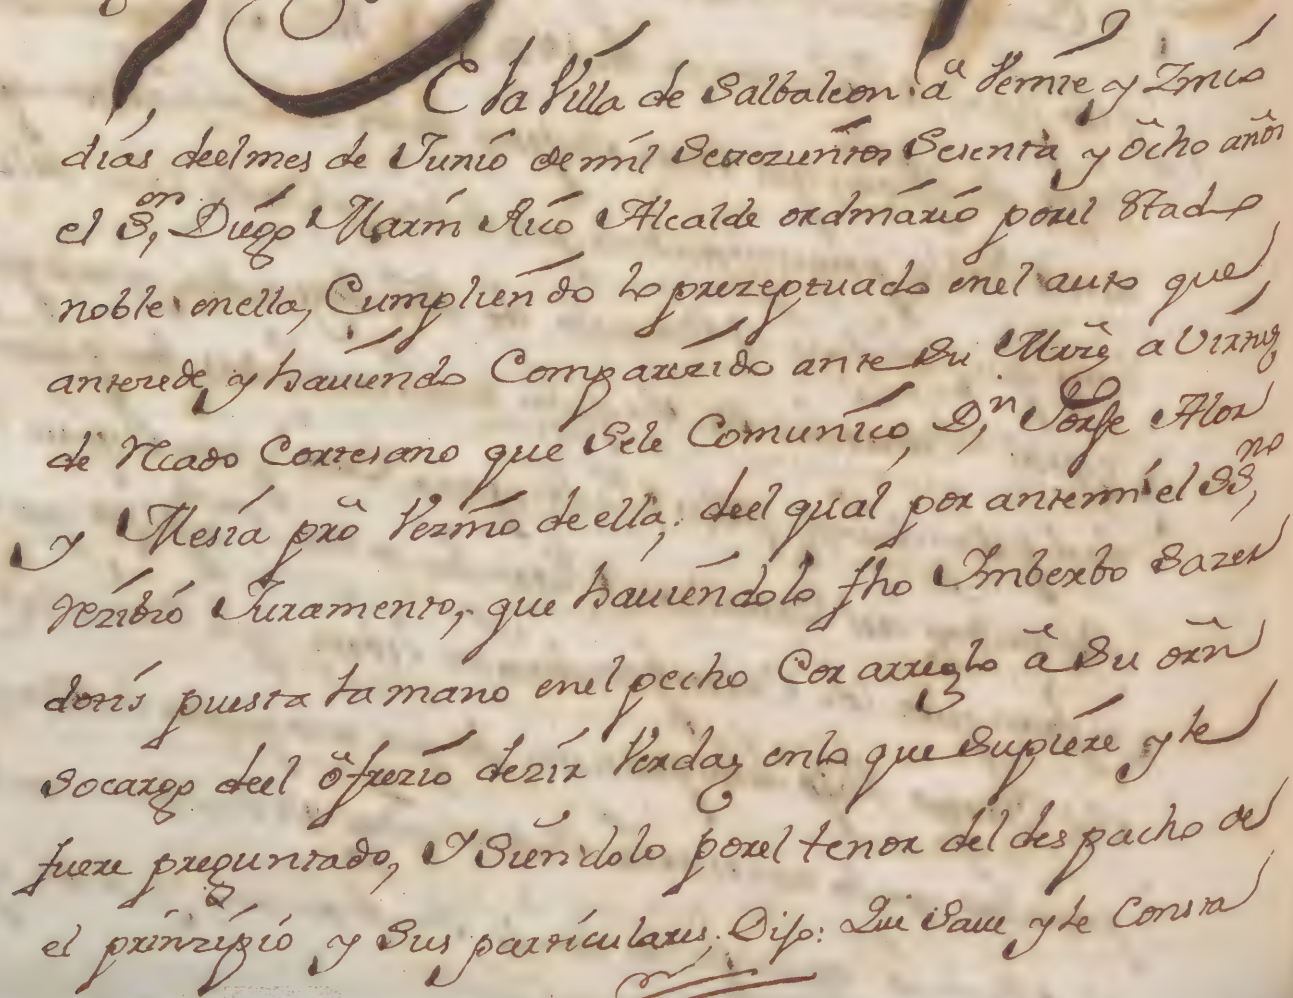 E la Villa de Salbaleon â Veinte y Zinco
días deel mes de Junio de mil setezientos Sesenta y ôcho años
el S.or Diego Marin Rico Alcalde ordinario porel Stado
noble en ella, Cumpliendo lo prezeptuado enel auto que
antezede, y haviendo Comparezido ante Su Mrd a Virtud
de Rcado Cortesano que Sele Comunico, D.n Jorje Alor
y Mesia pro Vezino de ella, deel qual por antemi el SS.no
rezibió Juramento, que haviendolo fho Inberbo Sazer
dotis puesta la mano enel pecho Con arreglo â Su orn
Socargo deel ôfrezio dezir Verdaz enlo que Supiere y le
fuere preguntado, Y Siendolo porel tenor del despacho de
el prinzipio y Sus particulares, Dijo: Que Save y le Consta